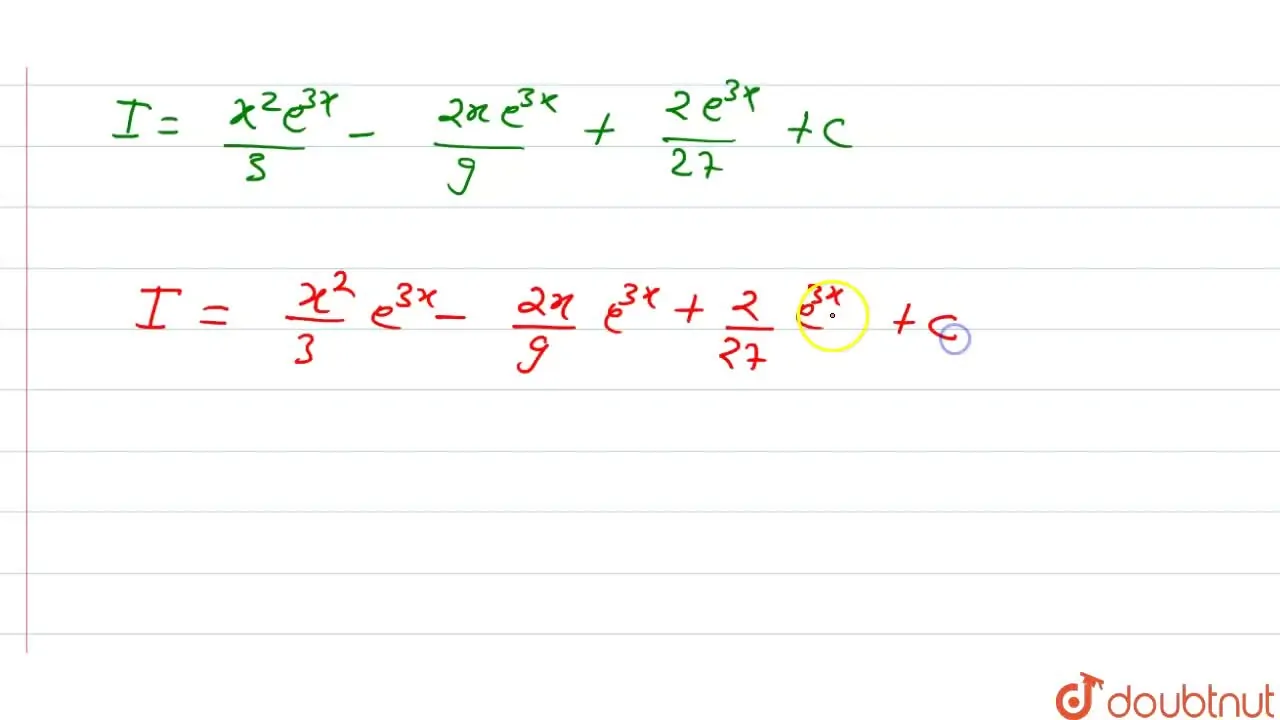 I = x²e³ˣ/3 - 2xe³ˣ/9 + 2e³ˣ/27 + c
I = x²/3 e³ˣ - 2x/9 e³ˣ + 2/27 e³ˣ + c
doubtnut